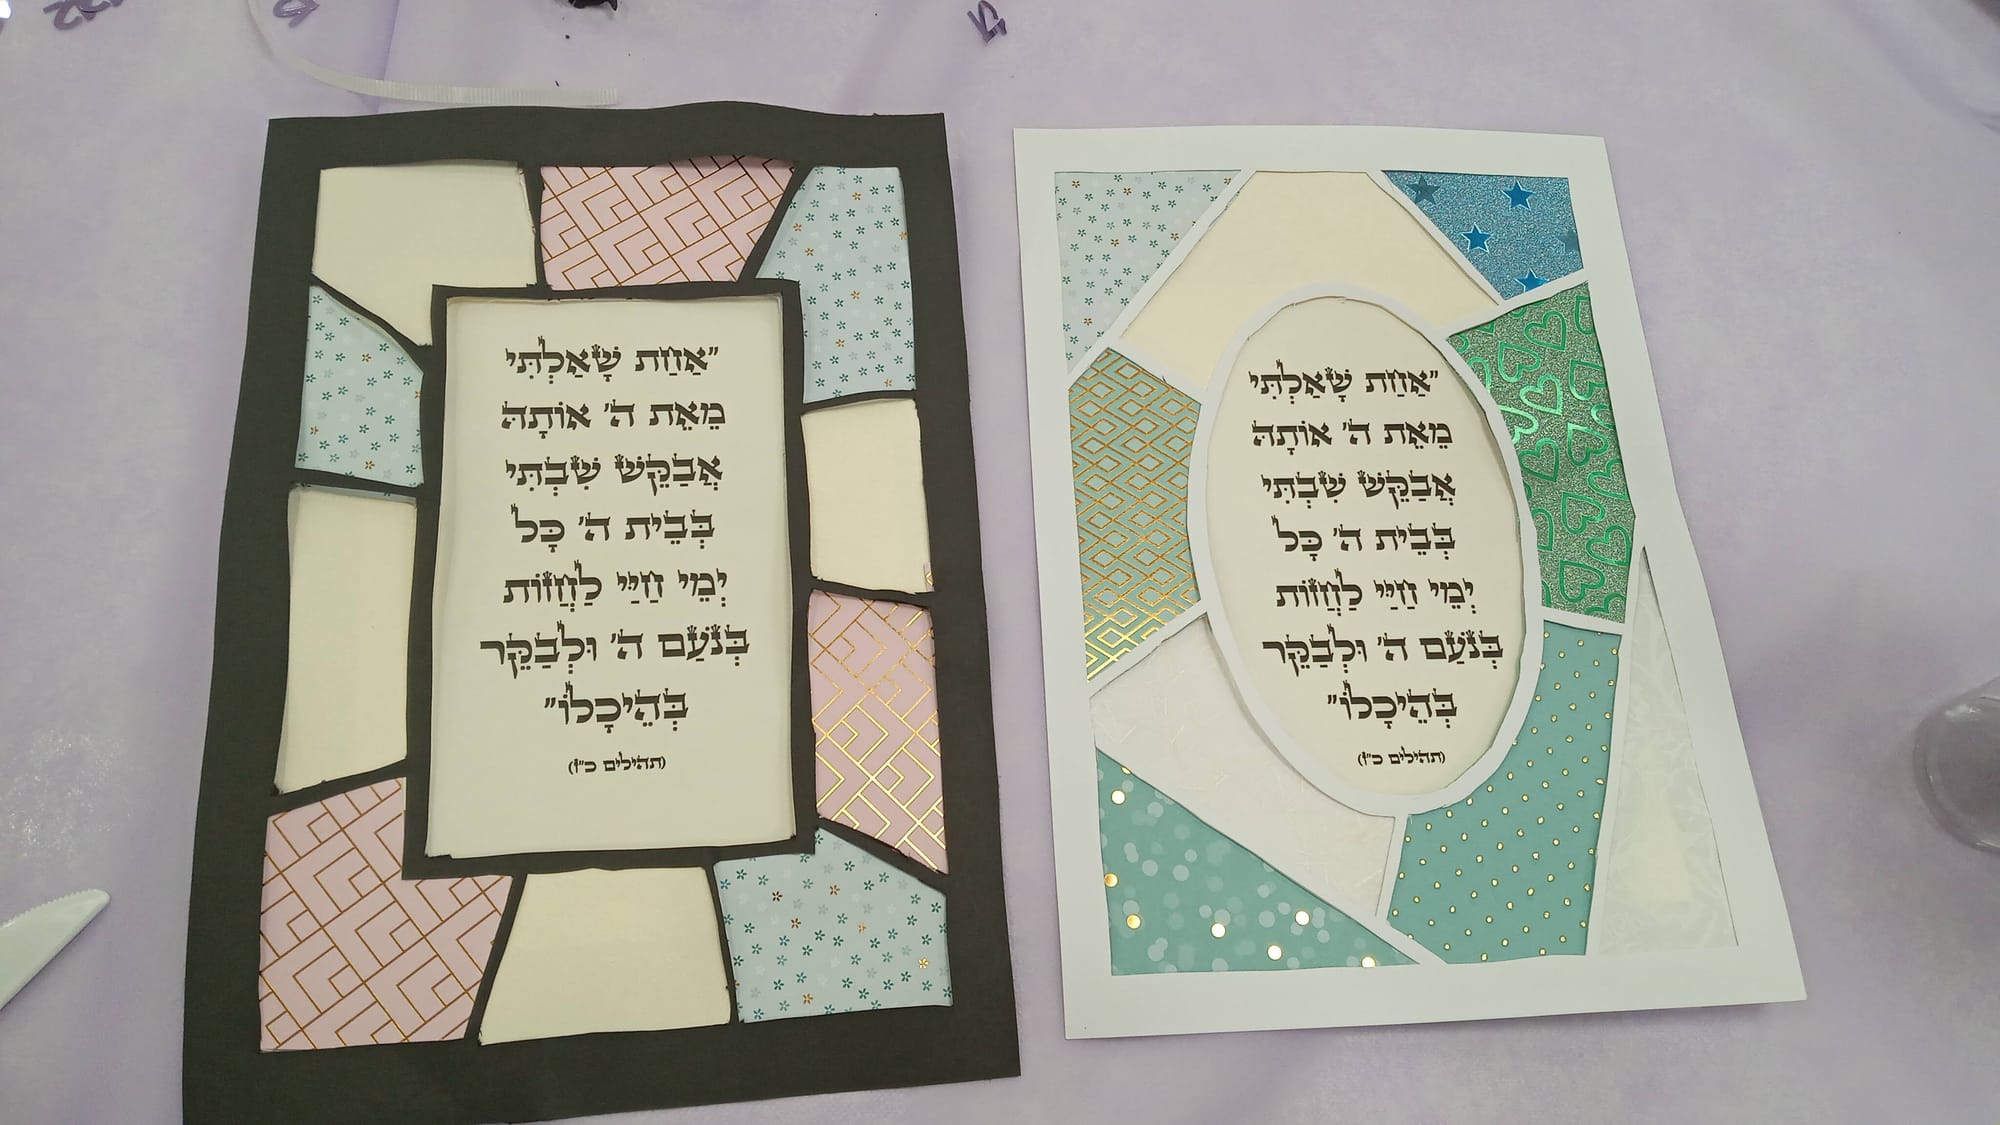 "אַחַת שָׁאַלְתִּי
מֵאֵת ה' אוֹתָהּ
אֲבַקֵּשׁ שִׁבְתִּי
בְּבֵית ה' כָּל
יְמֵי חַיַּי לַחֲזוֹת
בְּנֹעַם ה' וּלְבַקֵּר
בְּהֵיכָלוֹ"
(תהילים כ"ז)
"אַחַת שָׁאַלְתִּי
מֵאֵת ה' אוֹתָהּ
אֲבַקֵּשׁ שִׁבְתִּי
בְּבֵית ה' כָּל
יְמֵי חַיַּי לַחֲזוֹת
בְּנֹעַם ה' וּלְבַקֵּר
בְּהֵיכָלוֹ"
(תהילים כ"ז)